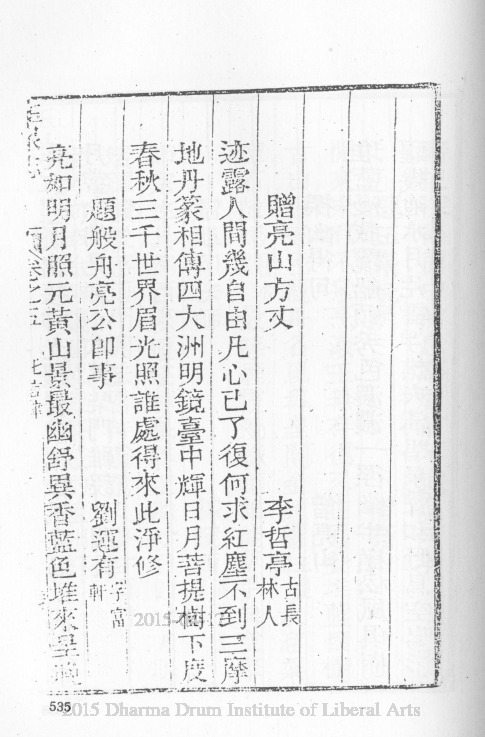 贈亮山方丈
李哲亭 古林 長人
迹露人間幾自由凡心已了復何求紅塵不到三摩
地丹篆相傳四大洲明鏡臺中輝日月菩提樹下度
春秋三千世界眉光照誰處得來此淨修
題般舟亮公卽事
劉運有 字富軒
亮如明月照元黃山景最幽舒異香藍色堆來
卷之五
535
2015 Dharma Drum Institute of Liberal Arts